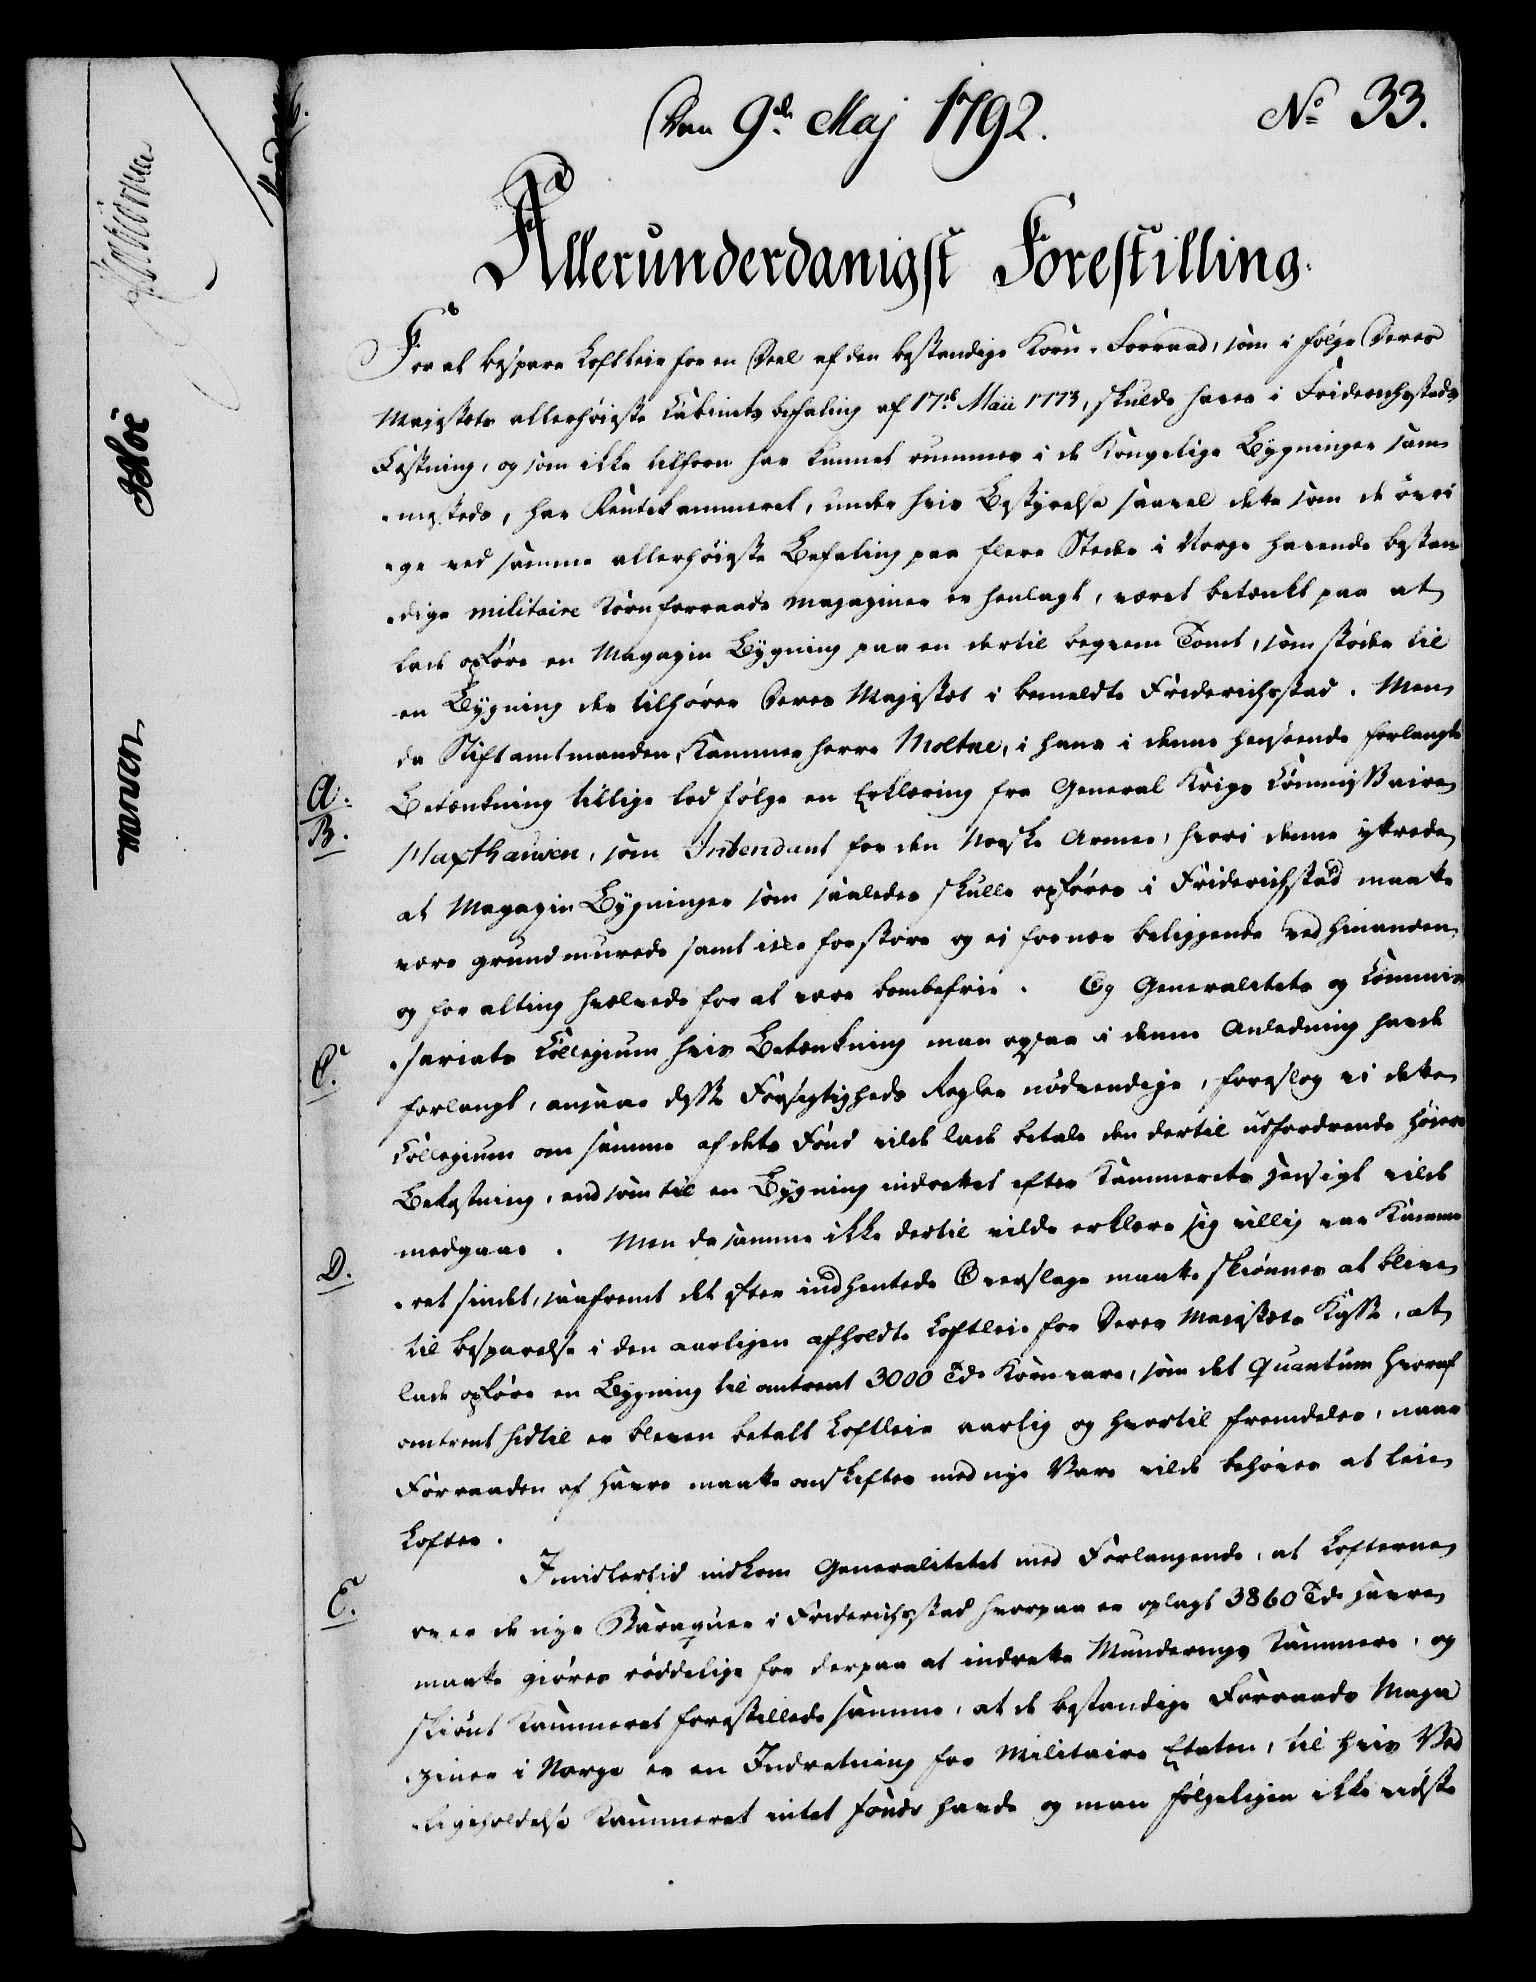 Den 9de Maj 1792.
No 33.
Allerunderdanigst Forestilling.
For at bespare Loftleie for en Deel af den bestandige Korn-Forraad, som i følge Deres
Majestets allerhøieste Cabinets befaling af 17de Maii 1773, skulde haves i Friderichsstads
Fæstning, og som ikke tilforn har kunnet rummes i de Kongelige Bygninger sam-
mesteds, har Rentekammeret, under hvis Bestyrelse saavel dette som de øvri-
ge ved samme allerhøieste Befaling paa flere Steder i Norge havende bestan-
dige militaire Korn forraads magaziner er henlagt, været betænkt paa at
lade opføre en Magazin Bygning paa en dertil beqvem Tomt, som støder til
en Bygning der tilhører Deres Majestet i bemeldte Friderichsstad. Men
da Stiftamtmanden, Kammerherre Moltke, i hans i denne henseende forlangte
A. Betænkning tillige lod følge en Erklæring fra General Krigs Commissairen
B. Haxthausen, som Intendant for den Norske Armee, hvori denne yttrede
at Magazin Bygninger som saaledes skulle opføres i Friderichsstad maatte
være grundmurede samt ikke for store og ei for nær beliggende ved hinanden
og for alting hvælvede for at være bombefrie. Og Generalitets og Commis-
C. sariats Collegium hvis Betænkning man ogsaa i denne Anledning havde
forlangt, ansaae disse Forsigtigheds Regler nødvendige, foreslog vi dette
Collegium om samme af dets Fond vilde lade betale den dertil udfordrende høiere
Bekostning, end som til en Bygning indrettet efter Kammerets Hensigt vilde
D. medgaae. Men da samme ikke dertil vilde erklære sig villig var Kamme-
ret sindet, saafremt det efter indhentede Overslage maatte skiønnes at blive
til besparelse i den aarligen afholdte Loftleie for Deres Majestets Kasse, at
lade opføre en Bygning til omtrent 3000 Tdr Kornvare, som det Quantum hvoraf
omtrent hidtil er bleven betalt Loftleie aarlig og hvortil fremdeles, naar
Forraaden af Havre maatte omskiftes med nye Vare vilde behøves at leie
Lofter.
Imidlertid indkom Generalitetet med Forlangende, at Lofterne
E. over de nye Baraquer i Friderichsstad hvorpaa er oplagt 3860 Tdr Havre
maatte giøres røddelige for derpaa at indrette Munderings Kammere, og
skiønt Kammeret forestillede samme, at de bestandige Forraads Maga-
ziner i Norge er en Indretning for Militaire Etaten, til hvis Ved-
ligeholdelse Kammeret intet Fonds havde og man følgeligen ikke vidste